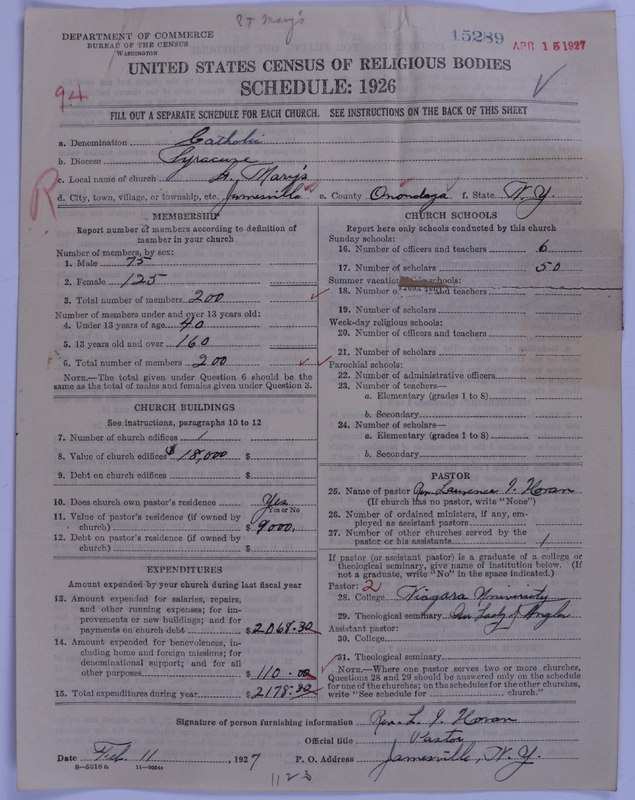 St Mary's
DEPARTMENT OF COMMERCE
BUREAU OF THE CENSUS
WASHINGTON
15289
APR 15 1927
UNITED STATES CENSUS OF RELIGIOUS BODIES
SCHEDULE: 1926
94
FILL OUT A SEPARATE SCHEDULE FOR EACH CHURCH. SEE INSTRUCTIONS ON THE BACK OF THIS SHEET
a. Denomination Catholic
b. Diocese Syracuse
c. Local name of church St. Mary's
R
d. City, town, village, or township, etc. Jamesville e. County Onondaga f. State N.Y.
MEMBERSHIP
Report number of members according to definition of
member in your church
Number of members, by sex:
1. Male 75
2. Female 125
3. Total number of members 200
Number of members under and over 13 years old:
4. Under 13 years of age 40
5. 13 years old and over 160
6. Total number of members 200
NOTE.—The total given under Question 6 should be the
same as the total of males and females given under Question 3.
CHURCH BUILDINGS
See instructions, paragraphs 10 to 12
7. Number of church edifices 1
8. Value of church edifices $ 18,000 $
9. Debt on church edifices $
10. Does church own pastor's residence Yes
Yes or No
11. Value of pastor's residence (if owned by
church) $ 9000.
12. Debt on pastor's residence (if owned by
church) $
EXPENDITURES
Amount expended by your church during last fiscal year
13. Amount expended for salaries, repairs,
and other running expenses; for im-
provements or new buildings; and for
payments on church debt $ 2068.30
14. Amount expended for benevolences, in-
cluding home and foreign missions; for
denominational support; and for all
other purposes $ 110.00
15. Total expenditures during year $ 2178.30
CHURCH SCHOOLS
Report here only schools conducted by this church
Sunday schools:
16. Number of officers and teachers 6
17. Number of scholars 50
Summer vacation schools:
18. Number of and teachers
19. Number of scholars
Week-day religious schools:
20. Number of officers and teachers
21. Number of scholars
Parochial schools:
22. Number of administrative officers
23. Number of teachers—
a. Elementary (grades 1 to 8)
b. Secondary
24. Number of scholars—
a. Elementary (grades 1 to 8)
b. Secondary
PASTOR
25. Name of pastor Rev. Lawrence I. Horan
(If church has no pastor, write "None")
26. Number of ordained ministers, if any, em-
ployed as assistant pastors
27. Number of other churches served by the
pastor or his assistants 1
If pastor (or assistant pastor) is a graduate of a college or
theological seminary, give name of institution below. (If
not a graduate, write "No" in the space indicated.)
Pastor: 2
28. College Niagara University
29. Theological seminary Our Lady of Angels
Assistant pastor:
30. College
31. Theological seminary
NOTE.—Where one pastor serves two or more churches,
Questions 28 and 29 should be answered only on the schedule
for one of the churches; on the schedules for the other churches,
write "See schedule for church."
Signature of person furnishing information Rev. L. I. Horan
Official title Pastor
Date Feb. 11, 1927 P. O. Address Jamesville, N.Y.